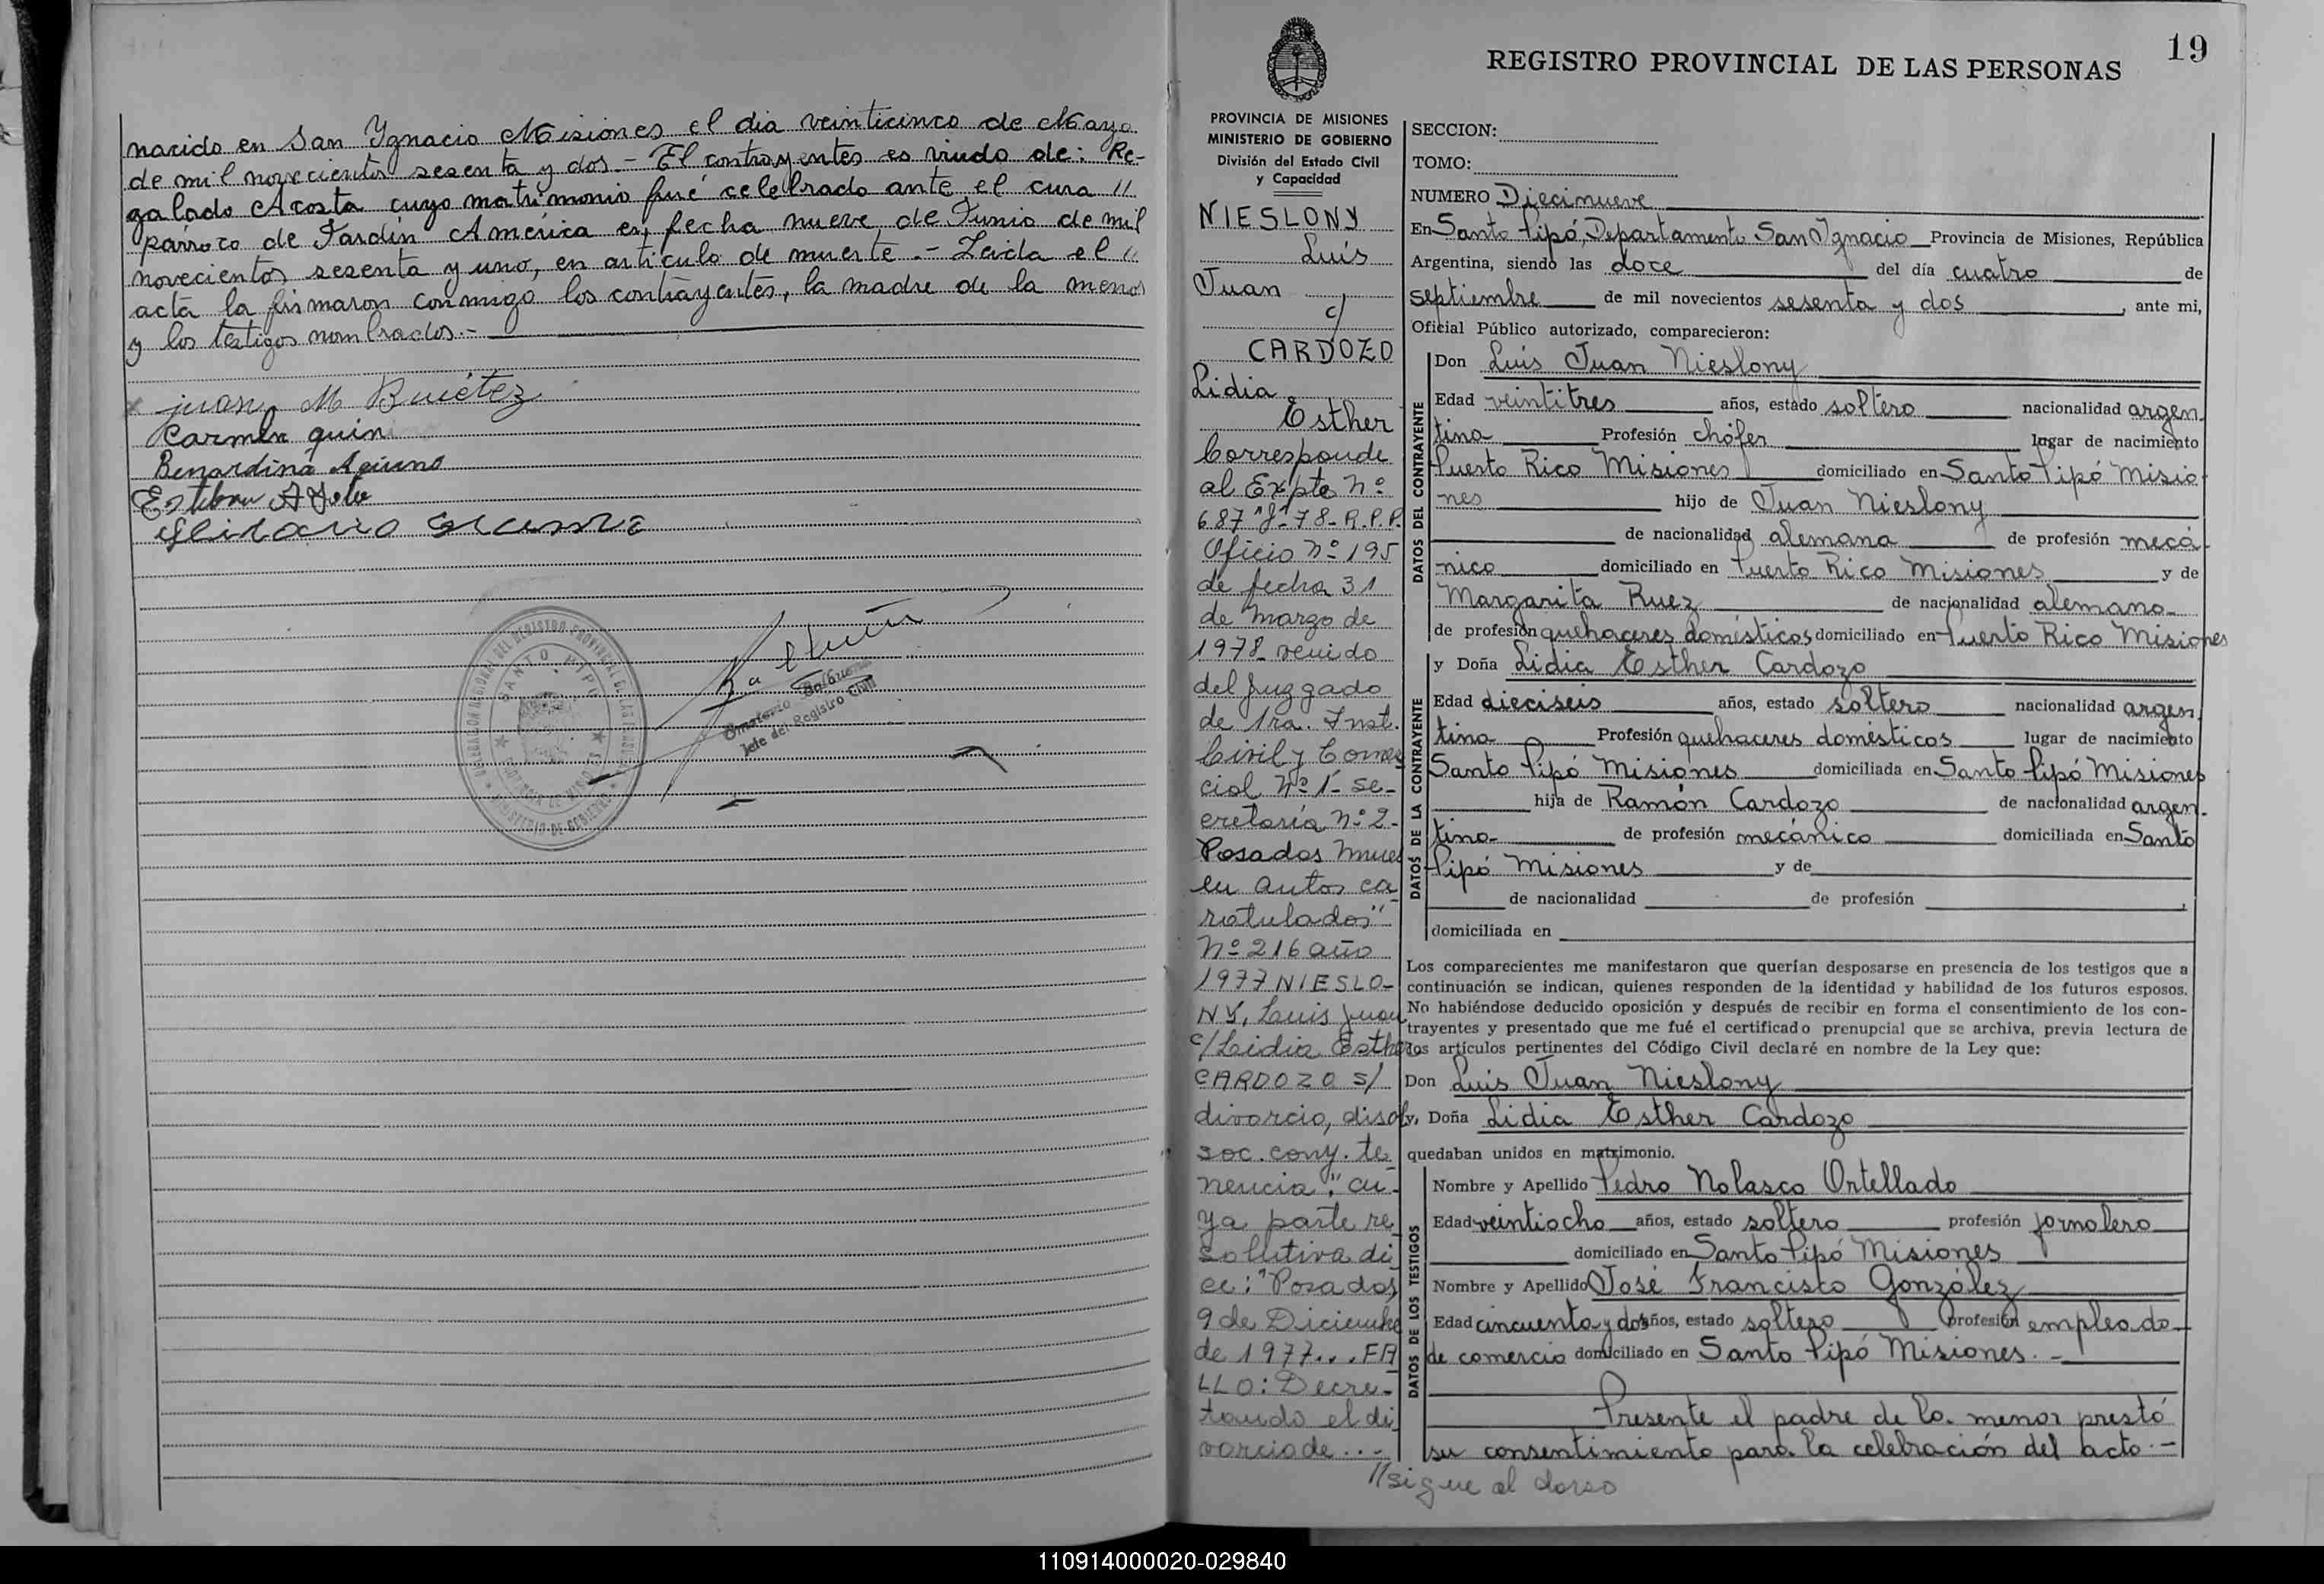 nacido en San Ygnacio Misiones el dia veinticinco de Mayo
de mil novecientos sesenta y dos.- El contrayentes es viudo de: Re-
galado Acosta cuyo matrimonio fué celebrado ante el cura //
párroco de Jardín América en fecha nueve de Junio de mil
novecientos sesenta y uno, en artículo de muerte.- Leida el //
acta la firmaron conmigo los contrayentes, la madre de la menor
y los testigos nombrados.-
juan M
Carmen quin
Bernardina
Esteban
SANTO PIPO
Jefe del Registro Civil
19
REGISTRO PROVINCIAL DE LAS PERSONAS
PROVINCIA DE MISIONES
MINISTERIO DE GOBIERNO
División del Estado Civil
y Capacidad
NIESLONY
Luis
Juan
c/
CARDOZO
Lidia
Esther
Corresponde
al Expte Nº
687 "J"-78-R.P.P.
Oficio Nº 195
de fecha 31
de marzo de
1978 venido
del Juzgado
de 1ra. Inst.
Civil y Comer
cial Nº 1- Se-
cretaría Nº 2-
Posadas Mnes
en autos ca
ratulados"
Nº 216 año
1977 NIESLO-
NY, Luis Juan
c/Lidia Esther
CARDOZO s/
divorcio, disol
soc. cony. te
nencia", cu-
ya parte re
solutiva di
ce: "Posadas,
9 de Diciembre
de 1977... FA
LLO: Decre-
tando el di
vorcio de ...-
SECCION:
TOMO:
NUMERO Diecinueve
En Santo Pipó, Departamento San Ygnacio Provincia de Misiones, República
Argentina, siendo las doce del día cuatro de
septiembre de mil novecientos sesenta y dos, ante mi,
Oficial Público autorizado, comparecieron:
DATOS DEL CONTRAYENTE
Don Luis Juan Nieslony
Edad veintitres años, estado soltero nacionalidad argen
tina Profesión chófer lugar de nacimiento
Puerto Rico Misiones domiciliado en Santo Pipó Misio
nes hijo de Juan Nieslony
de nacionalidad alemana de profesión mecá-
nico domiciliado en Puerto Rico Misiones y de
Margarita Ruez de nacionalidad alemana
de profesión quehaceres domésticos domiciliado en Puerto Rico Misiones
DATOS DE LA CONTRAYENTE
y Doña Lidia Esther Cardozo
Edad dieciseis años, estado soltera nacionalidad argen
tina Profesión quehaceres domésticos lugar de nacimiento
Santo Pipó Misiones domiciliada en Santo Pipó Misiones
hija de Ramón Cardozo de nacionalidad argen-
tina de profesión mecánico domiciliada en Santo
Pipó Misiones y de
de nacionalidad de profesión ,
domiciliada en
Los comparecientes me manifestaron que querían desposarse en presencia de los testigos que a
continuación se indican, quienes responden de la identidad y habilidad de los futuros esposos.
No habiéndose deducido oposición y después de recibir en forma el consentimiento de los con-
trayentes y presentado que me fué el certificado prenupcial que se archiva, previa lectura de
los artículos pertinentes del Código Civil declaré en nombre de la Ley que:
Don Luis Juan Nieslony
y, Doña Lidia Esther Cardozo
quedaban unidos en matrimonio.
DATOS DE LOS TESTIGOS
Nombre y Apellido Pedro Nolasco Ortellado
Edad veintiocho años, estado soltero profesión jornalero
domiciliado en Santo Pipó Misiones
Nombre y Apellido José Francisco González
Edad cincuenta y dos años, estado soltero profesión empleado
de comercio domiciliado en Santo Pipó Misiones.-
Presente el padre de la menor prestó
su consentimiento para la celebración del acto.-
//sigue al dorso
110914000020-029840